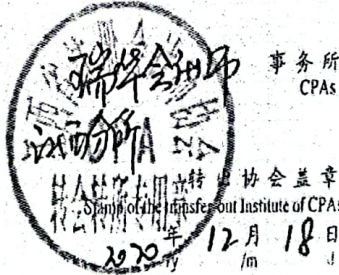 瑞华会计师 事务所
CPAs
江西分所
转出协会盖章
Stamp of the transfer-out Institute of CPAs
2020年 12月 18日
/y /m /d